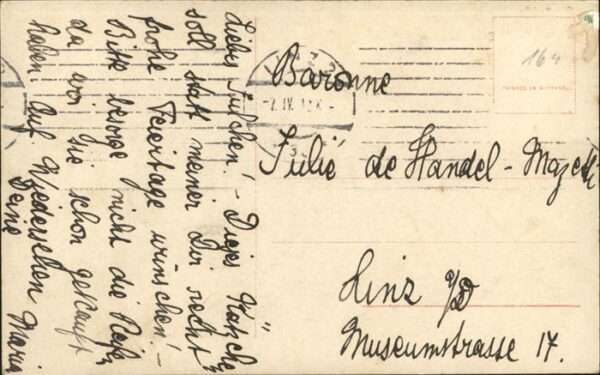 Liebes Julchen! - Dieses Kätzchen
soll statt meiner Dir recht
frohe Feiertage wünschen! -
Bitte besorge nicht die
da wir sie schon gekauft
haben. Auf Wiedersehen
Deine Maria
164
Baronne
Julie de Handel - Mazetti
Linz a/D
Museumstrasse 17.